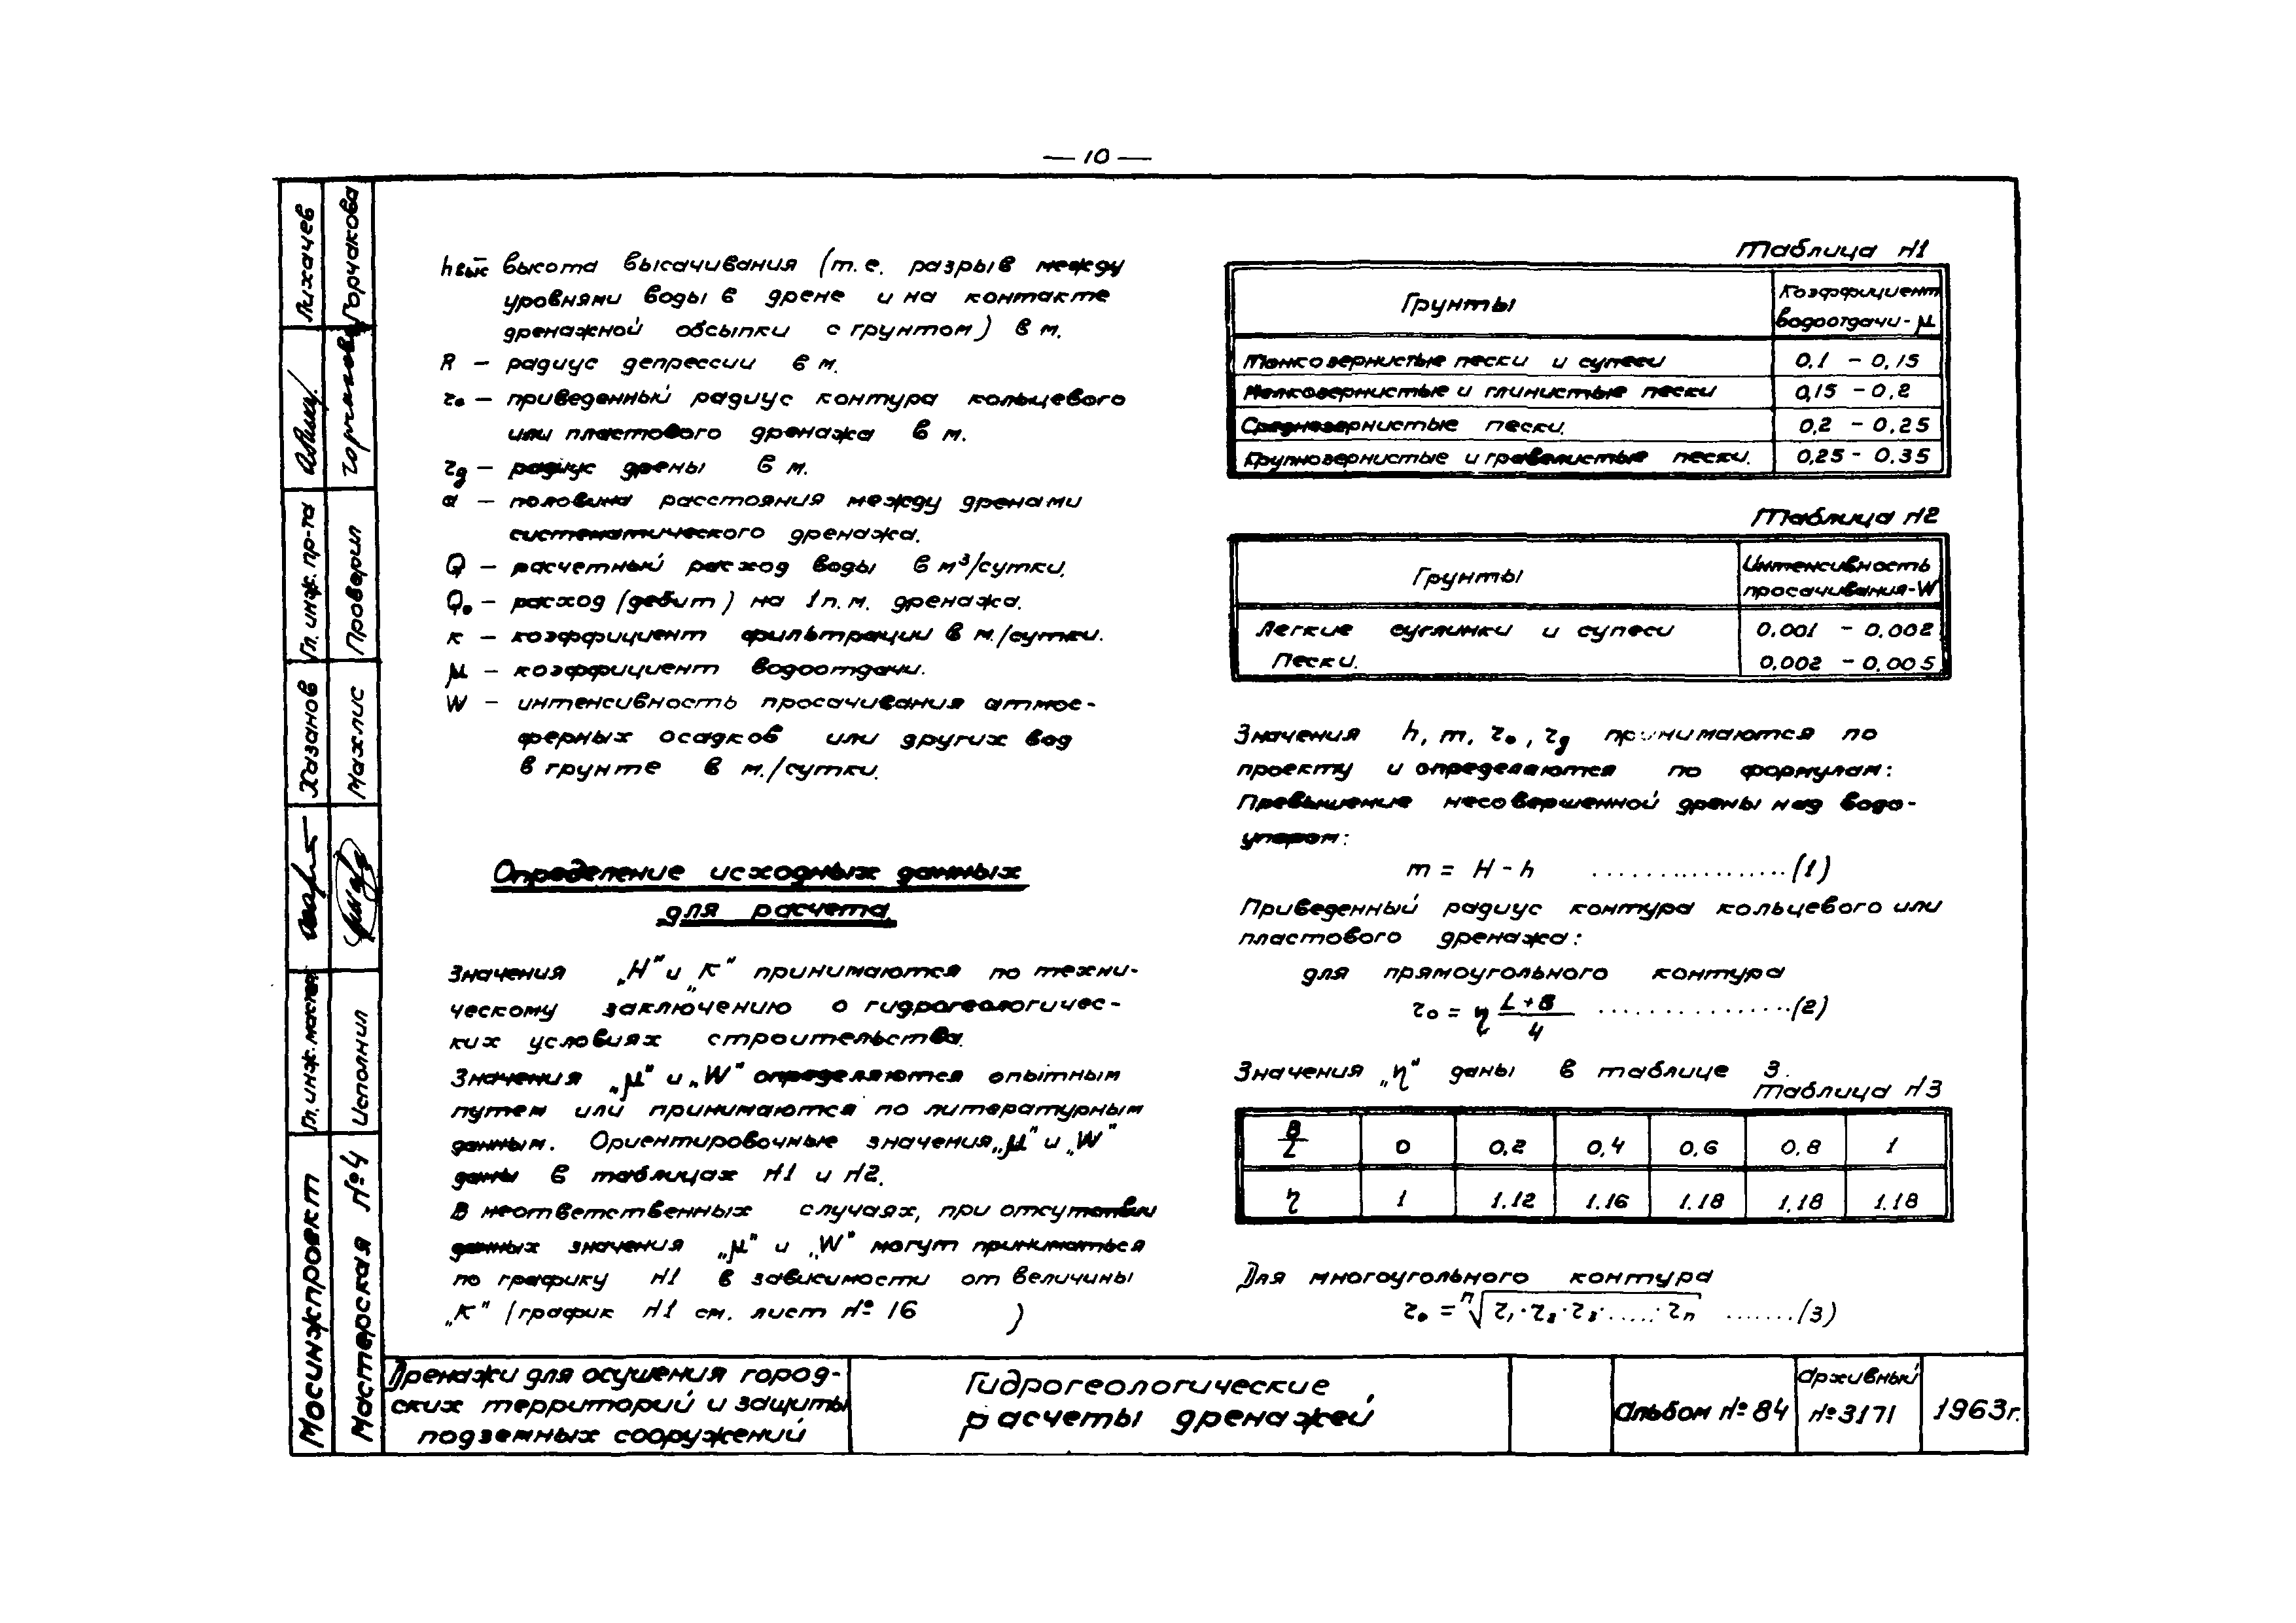 — 10 —
hвыс – высота высачивания (т.е. разрыв между
уровнями воды в дрене и на контакте
дренажной обсыпки с грунтом) в м.
R – радиус депрессии в м.
r₀ – приведенный радиус контура кольцевого
или пластового дренажа в м.
rд – радиус дрены в м.
a – половина расстояния между дренами
систематического дренажа.
Q – расчетный расход воды в м³/сутки.
Q₀ – расход (дебит) на 1 п.м. дренажа.
к – коэффициент фильтрации в м./сутки.
μ – коэффициент водоотдачи.
W – интенсивность просачивания атмос-
ферных осадков или других вод
в грунте в м./сутки.
Определение исходных данных
для расчета.
Значения „H" и „К" принимаются по техни-
ческому заключению о гидрогеологичес-
ких условиях строительства.
Значения „μ" и „W" определяются опытным
путем или принимаются по литературным
данным. Ориентировочные значения „μ" и „W"
даны в таблицах N1 и N2.
В неответственных случаях, при отсутствии
данных значения „μ" и „W" могут приниматься
по графику N1 в зависимости от величины
„К" (график N1 см. лист № 16 )
Таблица N1
Грунты | Коэффициент водоотдачи - μ
Тонкозернистые пески и супеси | 0,1 – 0,15
Мелкозернистые и глинистые пески | 0,15 – 0,2
Среднезернистые пески. | 0,2 – 0,25
Крупнозернистые и гравелистые пески. | 0,25 - 0.35
Таблица N2
Грунты | Интенсивность просачивания - W
Легкие суглинки и супеси | 0.001 – 0.002
Пески. | 0,002 – 0,005
Значения h, m, r₀, rд принимаются по
проекту и определяются по формулам:
Превышение несовершенной дрены над водо-
упором:
m = H - h ................. (1)
Приведенный радиус контура кольцевого или
пластового дренажа:
для прямоугольного контура
r₀ = η (L + B)/4 ............... (2)
Значения „η" даны в таблице 3.
Таблица N3
B/L | 0 | 0,2 | 0,4 | 0,6 | 0,8 | 1
η | 1 | 1.12 | 1.16 | 1.18 | 1,18 | 1.18
Для многоугольного контура
r₀ = ⁿ√r₁·r₂·r₃·.....·rₙ ....... (3)
Дренажи для осушения город-
ских территорий и защиты
подземных сооружений
Гидрогеологические
расчеты дренажей
Альбом № 84
Архивный
№ 3171
1963г.
Мосинжпроект
Мастерская № 4
Гл. инж. мастер.
Исполнил
Хазанов
Махлис
Гл. инж. пр-та
Проверил
Лихачев
Горчакова